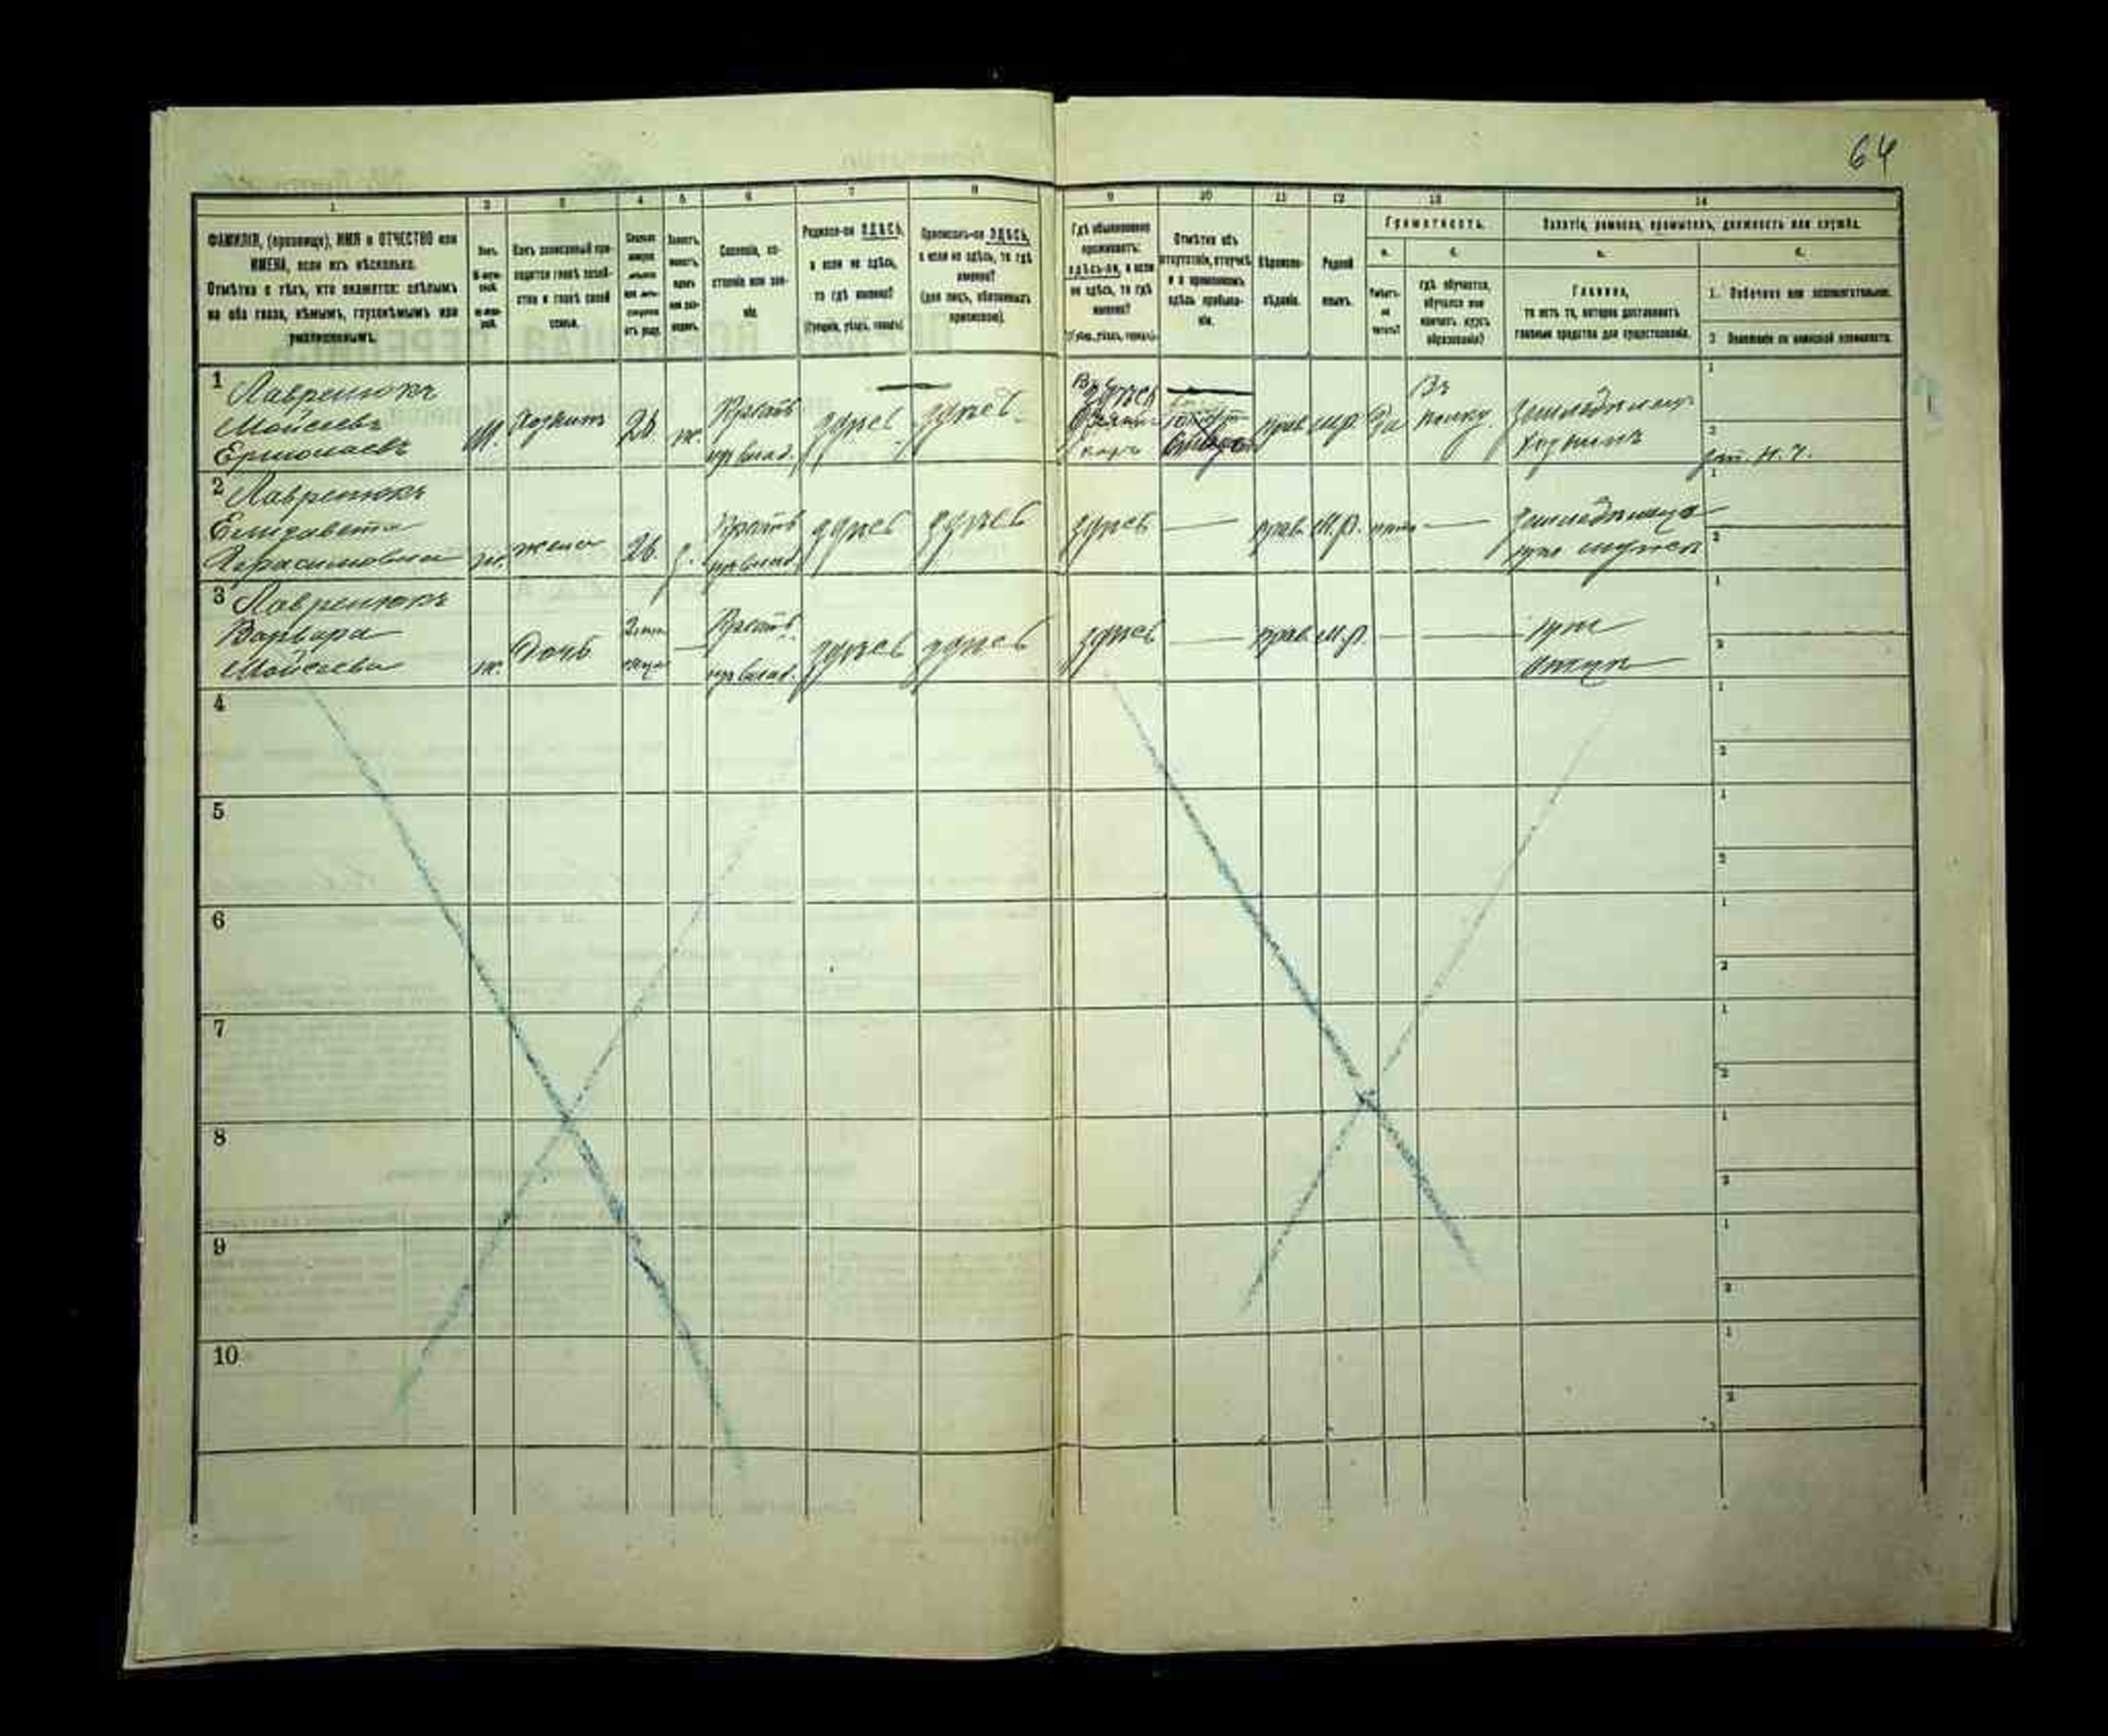 64
1
2
3
4
5
6
7
8
9
10
11
12
13
14
ФАМИЛІЯ, (прозвище), ИМЯ и ОТЧЕСТВО или
ИМЕНА, если ихъ нѣсколько.
Отмѣтка о тѣхъ, кто окажется: слѣпымъ
на оба глаза, нѣмымъ, глухонѣмымъ или
умалишеннымъ.
Полъ.
Какъ записанный при-
ходится главѣ хозяй-
ства и главѣ своей
семьи.
Сословіе, со-
стояніе или зва-
ніе.
Родился-ли ЗДѢСЬ,
а если не здѣсь,
то гдѣ именно?
(Губернія, уѣздъ, городъ)
Приписанъ-ли ЗДѢСЬ,
а если не здѣсь, то гдѣ
именно?
(для лицъ, обязанныхъ
припискою).
Гдѣ обыкновенно
проживаетъ:
здѣсь-ли, а если
не здѣсь, то гдѣ
именно?
(Губер., уѣздъ, городъ).
Отмѣтка объ
отсутствіи, отлучкѣ
и о временномъ
здѣсь пребыва-
ніи.
Вѣроиспо-
вѣданіе.
Родной
языкъ.
Грамотность.
а.
б.
Умѣетъ-
ли
читать?
гдѣ обучается,
обучался или
кончилъ курсъ
образованія?
Занятіе, ремесло, промыселъ, должность или служба.
а.
б.
Главное,
то есть то, которое доставляетъ
главныя средства для существованія.
1. Побочное или вспомогательное.
2 Положеніе по воинской повинности.
1 Лавренюкъ
Мойсеевъ
Ермолаевъ
М.
Хозяинъ
28
ж.
Крестъ
здѣсь
здѣсь
здѣсь
прав.
М.р.
Да
Въ
полку
Земледѣлецъ
Хозяинъ
2 Лавренюкъ
Елизавета
Герасимовна
ж.
жена
26.
Крестъ
здѣсь
здѣсь
здѣсь
—
прав.
М.р.
нѣтъ
—
при мужѣ
3 Лавренюкъ
Варвара
Мойсеева
ж.
Дочь
—
Крестъ.
здѣсь
здѣсь
здѣсь
—
прав.
М.р.
—
—
при
отцѣ
4
5
6
7
8
9
10